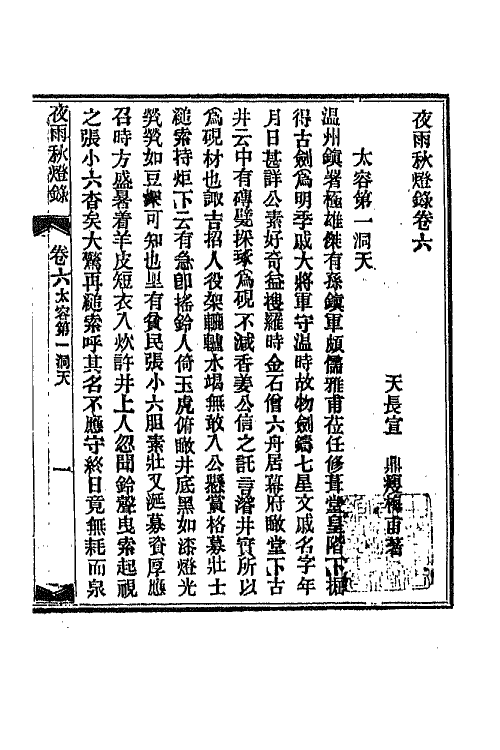 夜雨秋燈錄卷六
天長宣　鼎瘦梅甫著
太容第一洞天
温州鎮署極雄傑有孫鎮軍頗儒雅甫莅任修葺堂皇階下掘
得古劍爲明季戚大將軍守温時故物劍鐫七星文戚名字年
月日甚詳公素好奇益搜羅時金石僧六舟居幕府瞰堂下古
井云中有磚甓採琢爲硯不減香姜公信之託言濬井實所以
爲硯材也諏吉招人役架轆轤水竭無敢入公懸賞格募壯士
縋索持炬下云有急卽搖鈴人倚玉虎俯瞰井底黑如漆燈光
熒熒如豆深可知也里有貧民張小六胆素壯又涎募資厚應
召時方盛暑着羊皮短衣入炊許井上人忽聞鈴聲曳索起視
之張小六杳矣大驚再縋索呼其名不應守終日竟無耗而泉
夜雨秋燈錄
卷六太容第一洞天
一